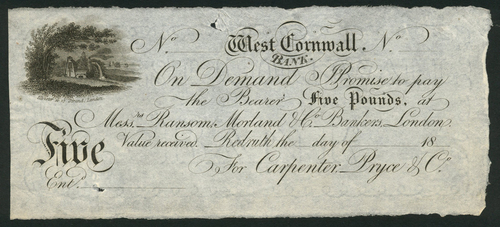 No West Cornwall. No
BANK.
On Demand I Promise to pay
the Bearer Five Pounds, at
Messrs Ransom, Morland & Co Bankers, London.
Value received Redruth the day of 18
Five For Carpenter Pryce & Co
Entd